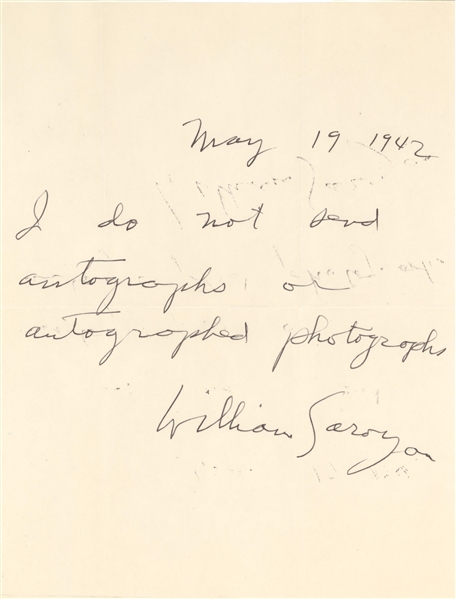 May 19 1942
I do not send
autographs or
autographed photographs
William Saroyan